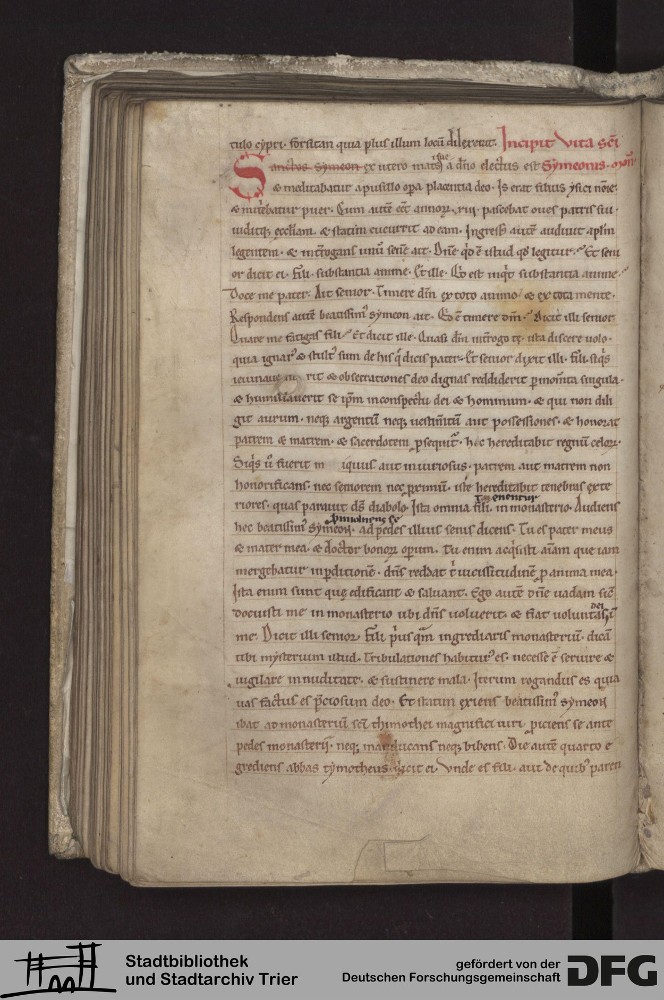 culo cypri · forsitan quia plus illum locū dilexerat. Incipit vita scī
Sanctus Symeon ex utero matris suę a dn̄o electus est Symeonis · mon̄
& meditabatur apusillo opa placentia deo · Is erat filius ysici noīe ·
& nutriebatur puer · Cum autē eēt annorꝝ · xiii · pascebat oves patris sui ·
uiditqꝫ ęccl̄am · & statim cucurrit ad eam · Ingressꝰ autē audiuit aplm̄
legentem · & interrogans unū senē ait · Dn̄e qd ē istud qd legitur · Et seni
or dicit ei · Fili · substantia anime · Et ille · Qd est inqt substantia anime ·
Doce me pater · Ait senior · Timere dm̄ ex toto animo · & ex tota mente ·
Respondens autē beatissimꝰ symeon ait · Qd ē timere dm̄ · Dicit illi senior
Quare me fatigas fili · Et dicit ille · Quasi dm̄ interrogo te · ista discere uolo ·
quia ignarꝰ & stultꝰ sum de his q̄ dicis pater · Et senior dixit illi · fili · siqs
rit & obsecrationes deo dignas reddiderit p momta singula ·
& humiliauerit se ipm̄ inconspectu dei & hominum · & qui non dili
git aurum · neqꝫ argentū neqꝫ uestmtū aut possessiones · & honorat
patrem & matrem · & sacerdotem psequitᷣ · hęc hereditabit regnū celorꝝ ·
Siqs ū fuerit in iquius aut iniuriosus · patrem aut matrem non
honorificans · nec seniorem nec pximū · iste hereditabit tenebras exte
riores · quas parauit ds̄ diabolo · Ista omnia fili · in monasterio · Audiens
hęc beatissimꝰ symeon · ad pedes illius senis dicens · Tu es pater meus
& mater mea · & doctor bonorꝝ operum · Tu enim acqsisti aīam que iam
mergebatur in pditionē · dn̄s reddat t̄ uicissitudinē p anima mea ·
Ista enim sunt quę edificant & saluant · Ego autē dn̄e uadam sic
docuisti me in monasterio ubi dn̄s uoluerit · & fiat voluntas dei in
me · Dicit illi senior · Fili pusqm̄ ingrediaris monasteriū · dicā
tibi mysterium istud · Tribulationes habiturꝰ es · necesse ē seruire &
uigilare in nuditate · & sustinere mala · Iterum rogandus es quia
uas factus es pciosum deo · Et statim exiens beatissimꝰ symeon
ibat ad monasteriū scī thimothei magnifici uiri · piciens se ante
pedes monasterii · neqꝫ manducans neqꝫ bibens · Die autē quarto e
grediens abbas tymotheus · dicit ei · Vnde es fili · aut de quibꝰ paren
Stadtbibliothek
und Stadtarchiv Trier
gefördert von der
Deutschen Forschungsgemeinschaft
DFG